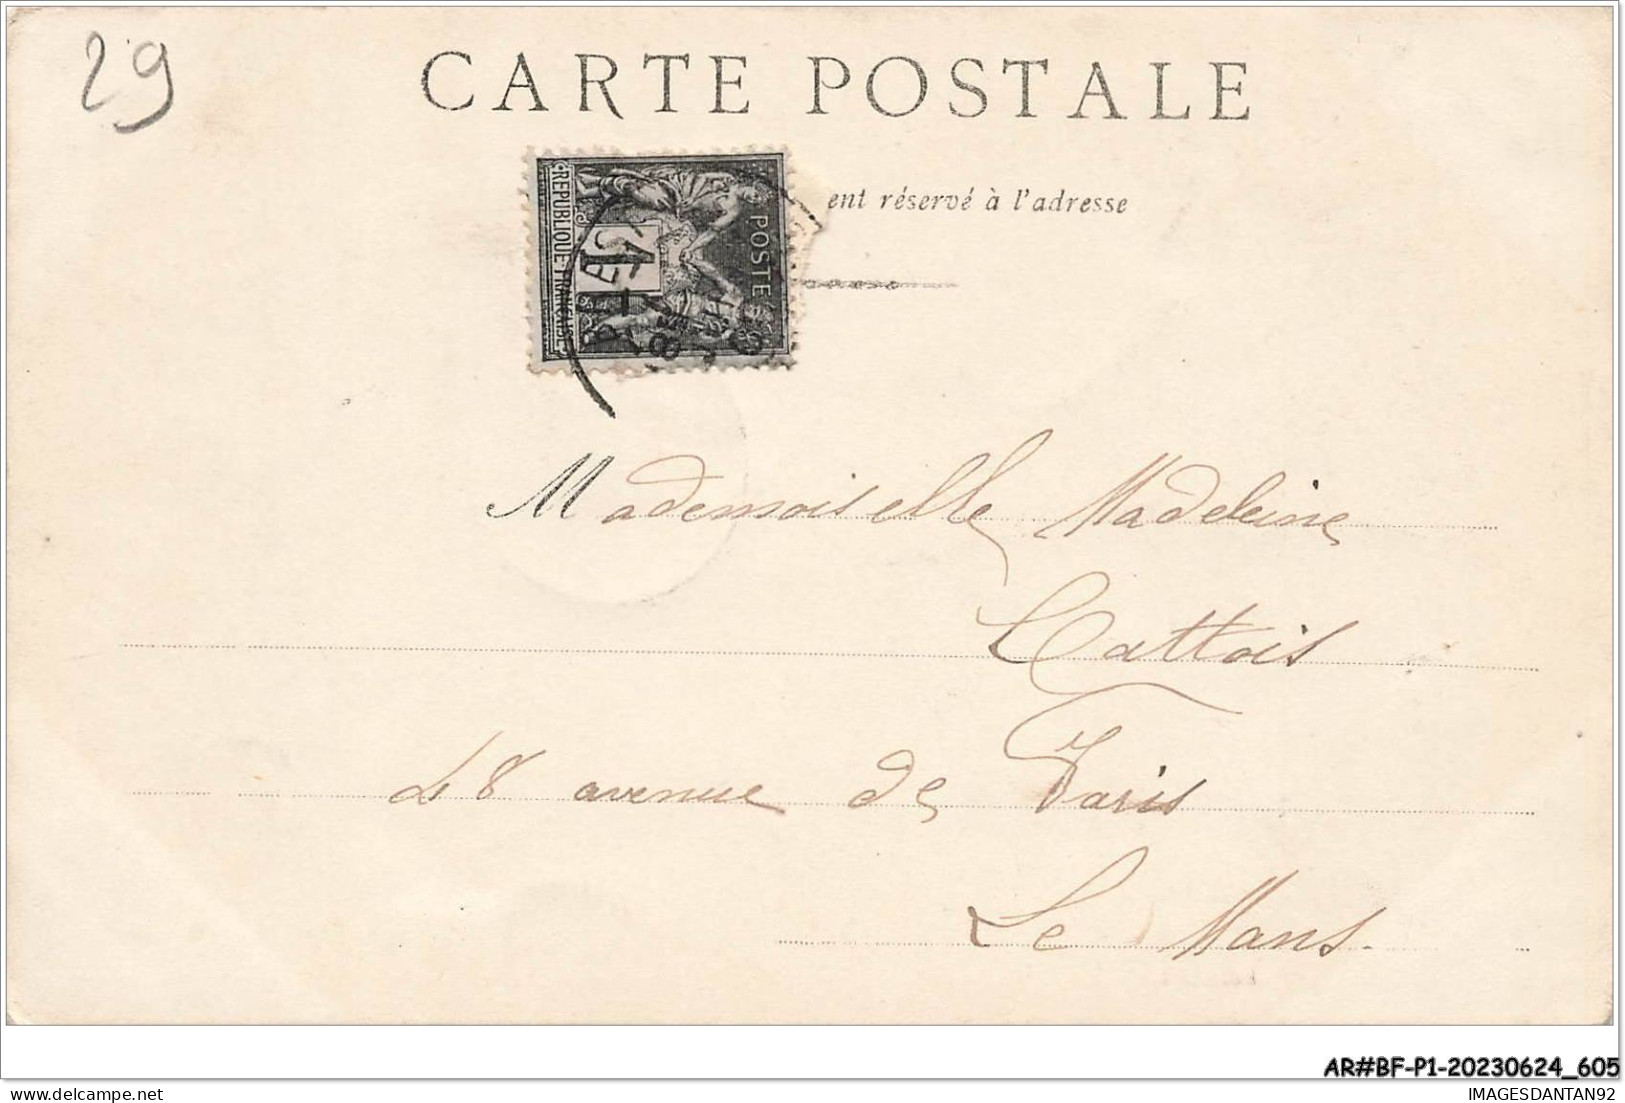 29
CARTE POSTALE
ent réservé à l'adresse
REPUBLIQUE FRANÇAISE
1
POSTE
Mademoiselle Madeleine
Cattois
48 avenue de Paris
Le Mans.
AR#BF-P1-20230624_605
IMAGESDANTAN92